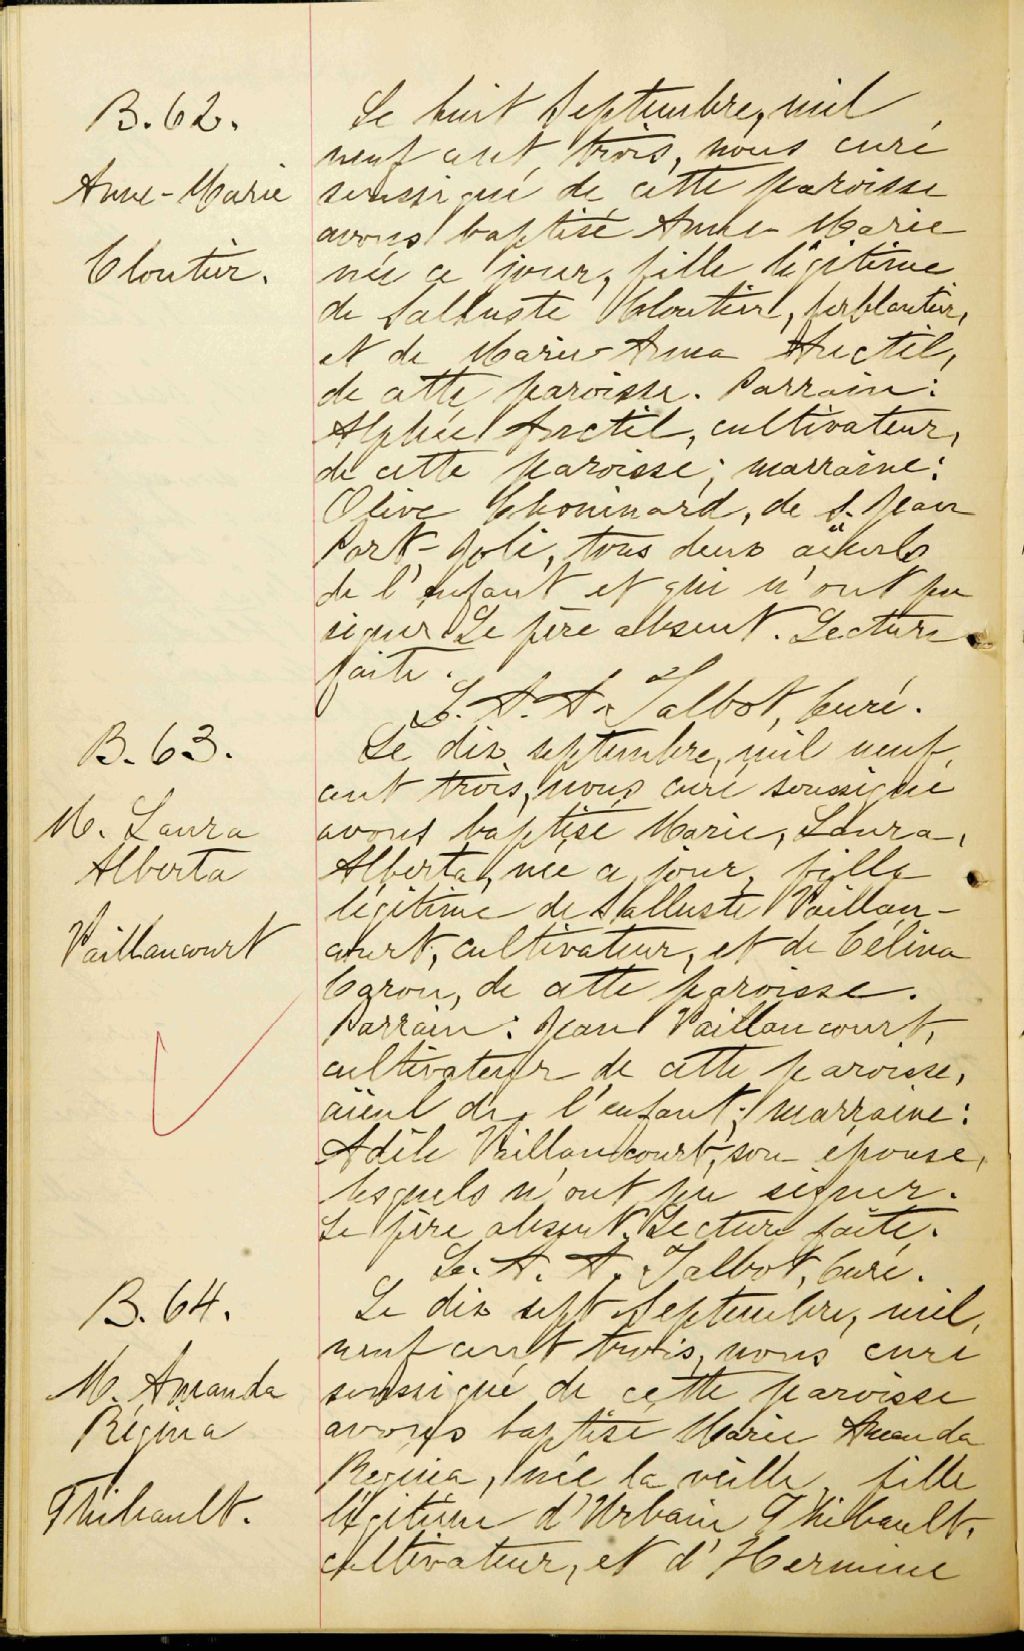 B.62.
Anne-Marie
Cloutier.
Le huit Septembre, mil
neuf cent trois, nous curé
soussigné de cette paroisse
avons baptisé Anne-Marie
née ce jour, fille légitime
de Salluste Cloutier, ferblantier,
et de Marie-Anna Anctil,
de cette paroisse. Parrain:
Alphée Anctil, cultivateur,
de cette paroisse; marraine:
Olive Chouinard, de S. Jean
Port-Joli, tous deux aïeuls
de l'enfant et qui n'ont pu
signer. Le père absent. Lecture
faite.
L. A. A. Talbot, Curé.
B. 63.
M. Laura
Alberta
Vaillancourt
Le dix septembre, mil neuf
cent trois, nous curé soussigné
avons baptisé Marie, Laura,
Alberta, née ce jour, fille
légitime de Salluste Vaillan-
court, cultivateur, et de Célina
Caron, de cette paroisse.
Parrain: Jean Vaillancourt,
cultivateur de cette paroisse,
aïeul de l'enfant; marraine:
Adèle Vaillancourt, son épouse,
lesquels n'ont pu signer.
Le père absent. Lecture faite.
L. A. A. Talbot, Curé.
B. 64.
M. Amanda
Régina
Thibault.
Le dix sept Septembre, mil,
neuf cent trois, nous curé
soussigné de cette paroisse
avons baptisé Marie Amanda
Regina, née la veille, fille
légitime d'Urbain Thibault,
cultivateur, et d'Hermine